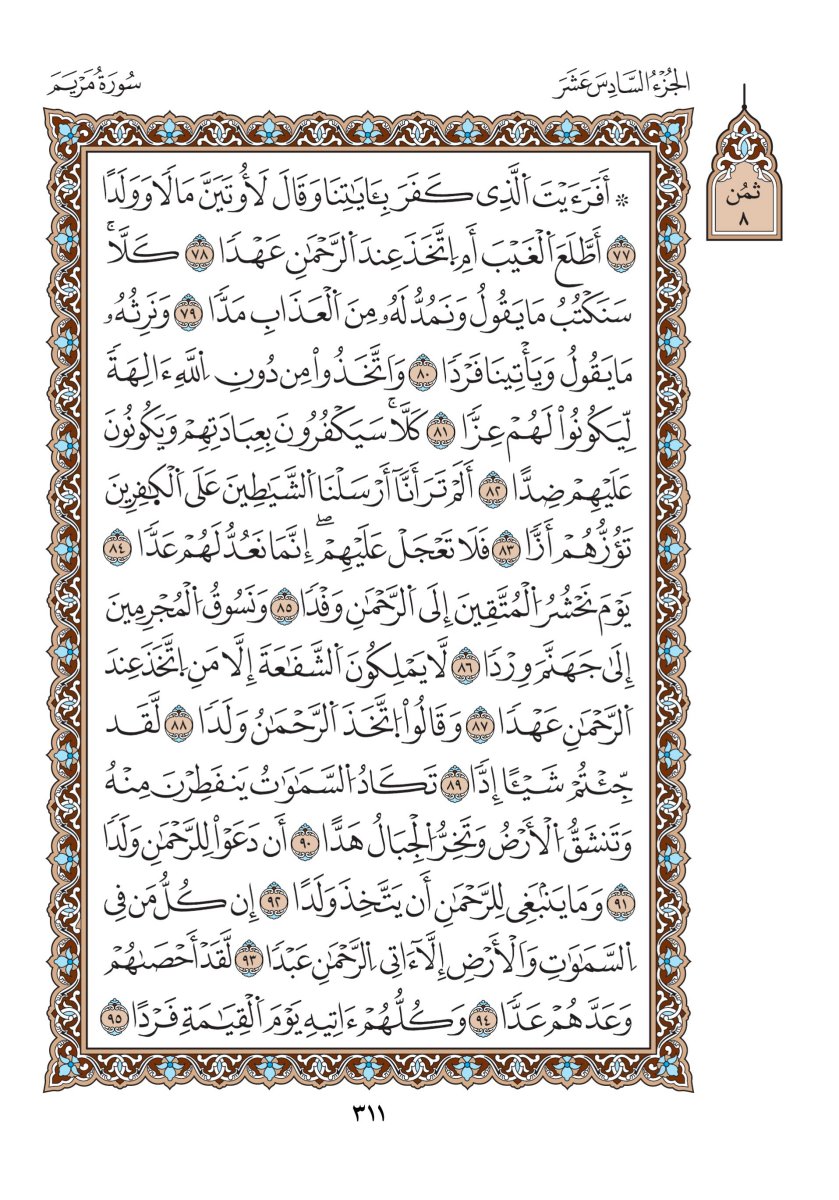 الجُزْءُ السَّادِسَ عَشَرَ
سُورَةُ مَرْيَمَ
ثُمُن
٨
۞ أَفَرَءَيْتَ ٱلَّذِى كَفَرَ بِـَٔايَٰتِنَا وَقَالَ لَأُوتَيَنَّ مَالًا وَوَلَدًا
٧٧ أَطَّلَعَ ٱلْغَيْبَ أَمِ ٱتَّخَذَ عِندَ ٱلرَّحْمَٰنِ عَهْدًا ٧٨ كَلَّاۚ
سَنَكْتُبُ مَا يَقُولُ وَنَمُدُّ لَهُۥ مِنَ ٱلْعَذَابِ مَدًّا ٧٩ وَنَرِثُهُۥ
مَا يَقُولُ وَيَأْتِينَا فَرْدًا ٨٠ وَٱتَّخَذُوا۟ مِن دُونِ ٱللَّهِ ءَالِهَةً
لِّيَكُونُوا۟ لَهُمْ عِزًّا ٨١ كَلَّاۚ سَيَكْفُرُونَ بِعِبَادَتِهِمْ وَيَكُونُونَ
عَلَيْهِمْ ضِدًّا ٨٢ أَلَمْ تَرَ أَنَّآ أَرْسَلْنَا ٱلشَّيَٰطِينَ عَلَى ٱلْكَٰفِرِينَ
تَؤُزُّهُمْ أَزًّا ٨٣ فَلَا تَعْجَلْ عَلَيْهِمْۖ إِنَّمَا نَعُدُّ لَهُمْ عَدًّا ٨٤
يَوْمَ نَحْشُرُ ٱلْمُتَّقِينَ إِلَى ٱلرَّحْمَٰنِ وَفْدًا ٨٥ وَنَسُوقُ ٱلْمُجْرِمِينَ
إِلَىٰ جَهَنَّمَ وِرْدًا ٨٦ لَّا يَمْلِكُونَ ٱلشَّفَٰعَةَ إِلَّا مَنِ ٱتَّخَذَ عِندَ
ٱلرَّحْمَٰنِ عَهْدًا ٨٧ وَقَالُوا۟ ٱتَّخَذَ ٱلرَّحْمَٰنُ وَلَدًا ٨٨ لَّقَدْ
جِئْتُمْ شَيْـًٔا إِدًّا ٨٩ تَكَادُ ٱلسَّمَٰوَٰتُ يَنفَطِرْنَ مِنْهُ
وَتَنشَقُّ ٱلْأَرْضُ وَتَخِرُّ ٱلْجِبَالُ هَدًّا ٩٠ أَن دَعَوْا۟ لِلرَّحْمَٰنِ وَلَدًا
٩١ وَمَا يَنۢبَغِى لِلرَّحْمَٰنِ أَن يَتَّخِذَ وَلَدًا ٩٢ إِن كُلُّ مَن فِى
ٱلسَّمَٰوَٰتِ وَٱلْأَرْضِ إِلَّآ ءَاتِى ٱلرَّحْمَٰنِ عَبْدًا ٩٣ لَّقَدْ أَحْصَىٰهُمْ
وَعَدَّهُمْ عَدًّا ٩٤ وَكُلُّهُمْ ءَاتِيهِ يَوْمَ ٱلْقِيَٰمَةِ فَرْدًا ٩٥
٣١١